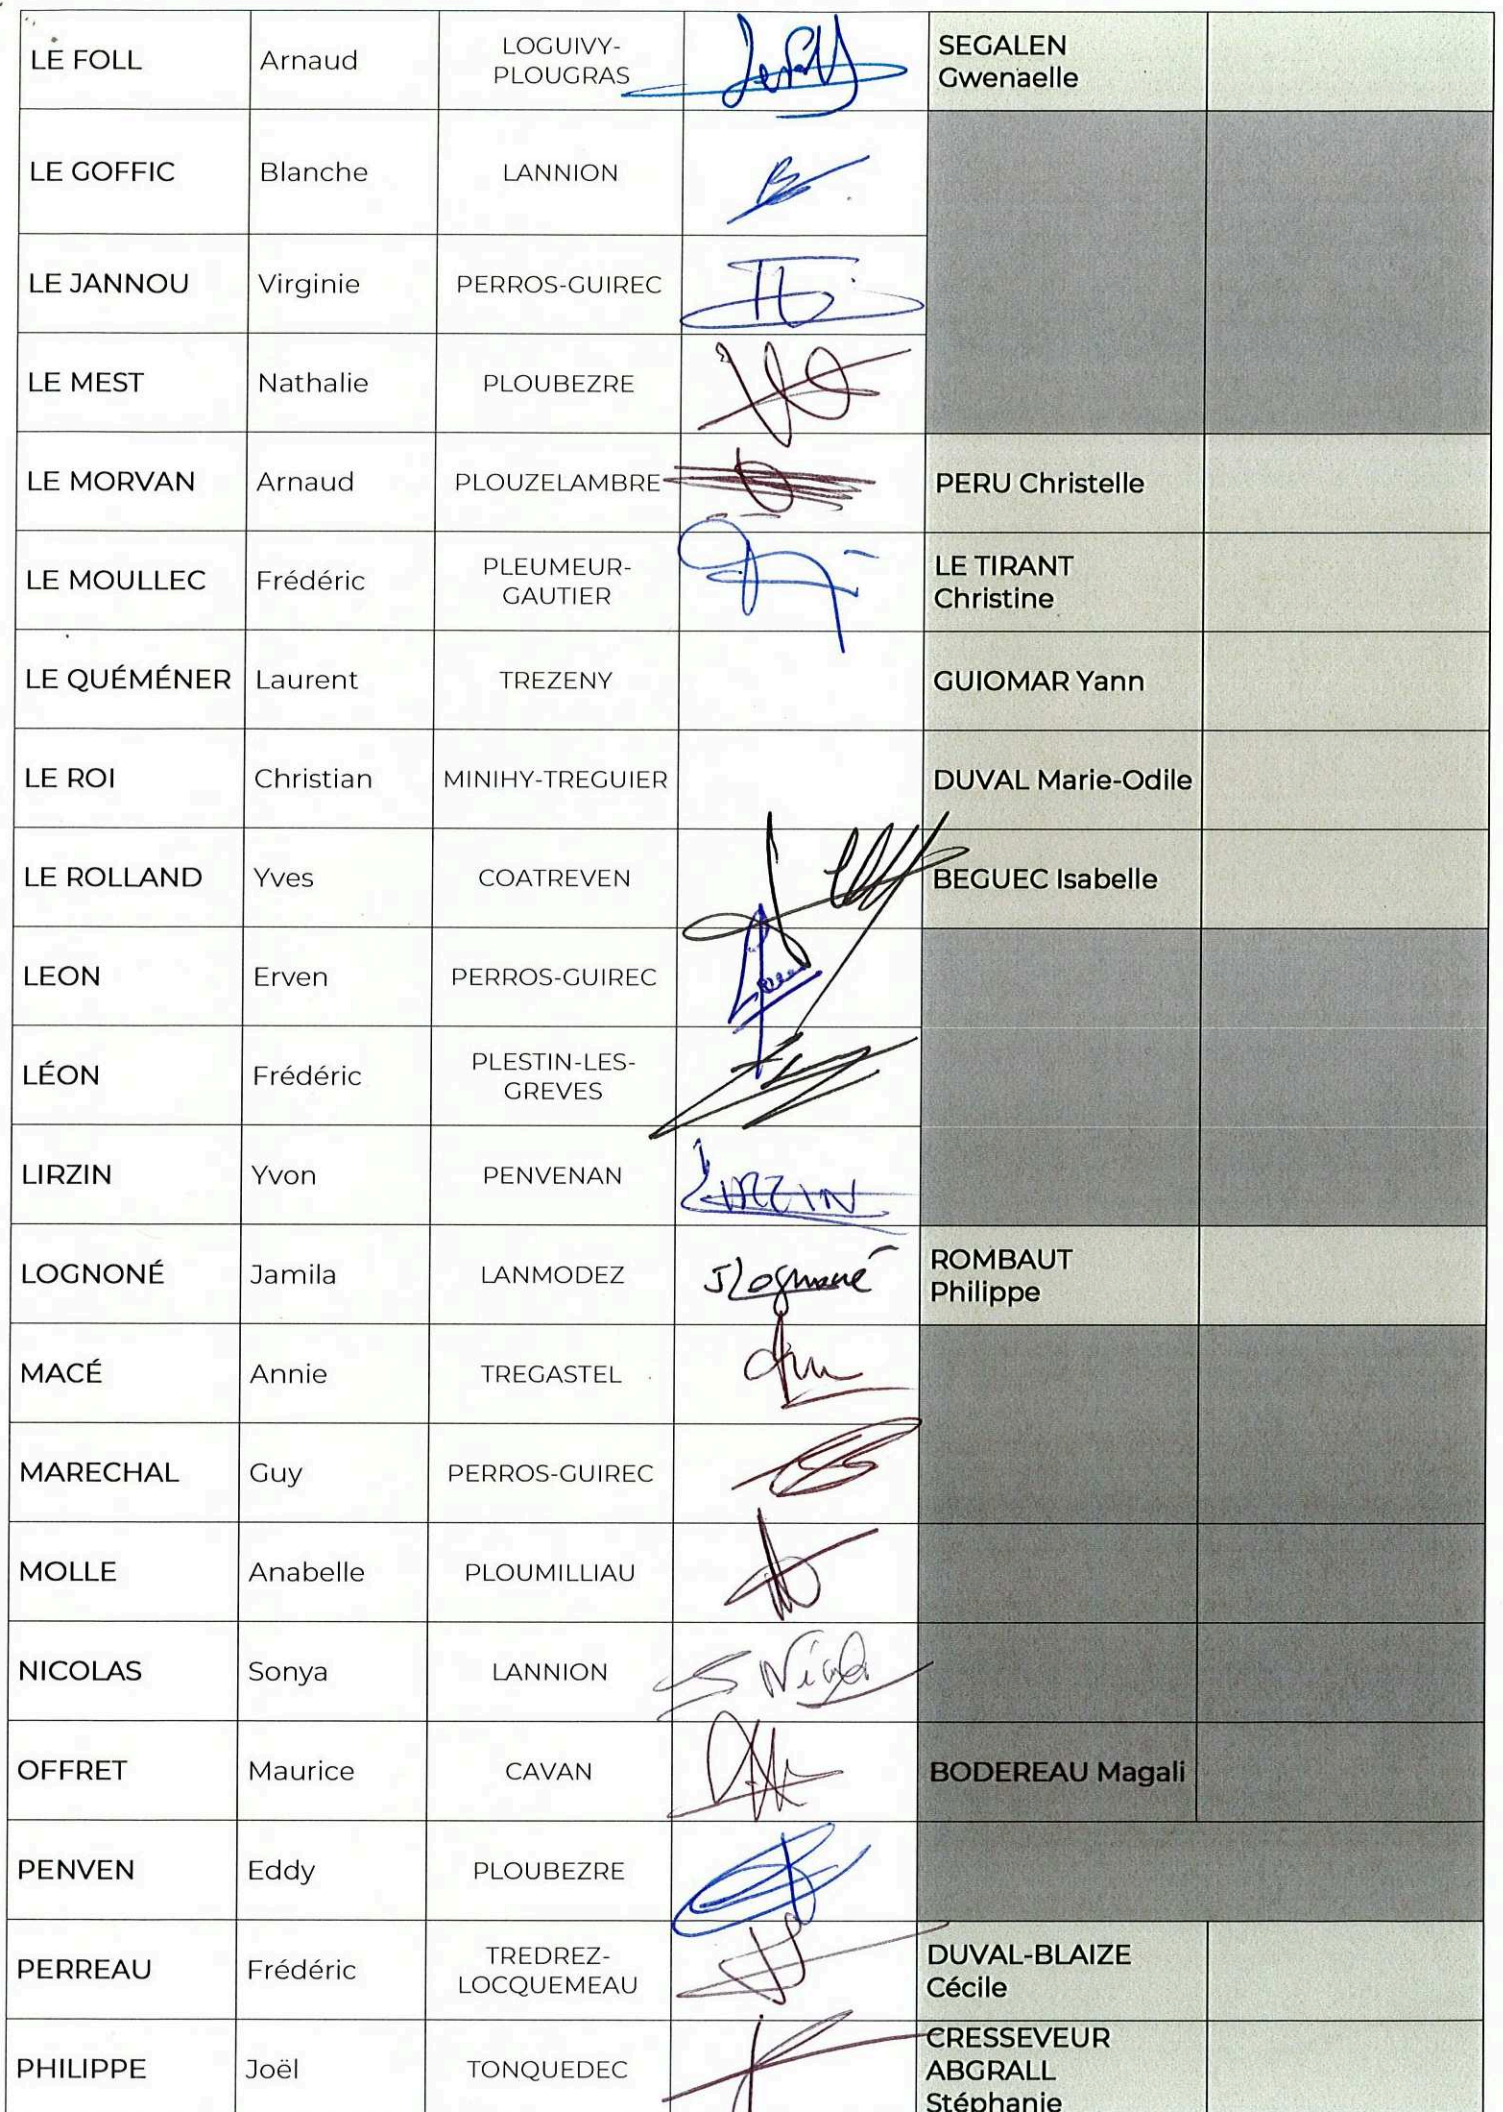 LE FOLL Arnaud LOGUIVY-PLOUGRAS SEGALEN Gwenaelle
LE GOFFIC Blanche LANNION
LE JANNOU Virginie PERROS-GUIREC
LE MEST Nathalie PLOUBEZRE
LE MORVAN Arnaud PLOUZELAMBRE PERU Christelle
LE MOULLEC Frédéric PLEUMEUR-GAUTIER LE TIRANT Christine
LE QUÉMÉNER Laurent TREZENY GUIOMAR Yann
LE ROI Christian MINIHY-TREGUIER DUVAL Marie-Odile
LE ROLLAND Yves COATREVEN BEGUEC Isabelle
LEON Erven PERROS-GUIREC
LÉON Frédéric PLESTIN-LES-GREVES
LIRZIN Yvon PENVENAN LIRZIN
LOGNONÉ Jamila LANMODEZ JLognoné ROMBAUT Philippe
MACÉ Annie TREGASTEL
MARECHAL Guy PERROS-GUIREC
MOLLE Anabelle PLOUMILLIAU
NICOLAS Sonya LANNION
OFFRET Maurice CAVAN BODEREAU Magali
PENVEN Eddy PLOUBEZRE
PERREAU Frédéric TREDREZ-LOCQUEMEAU DUVAL-BLAIZE Cécile
PHILIPPE Joël TONQUEDEC CRESSEVEUR ABGRALL Stéphanie